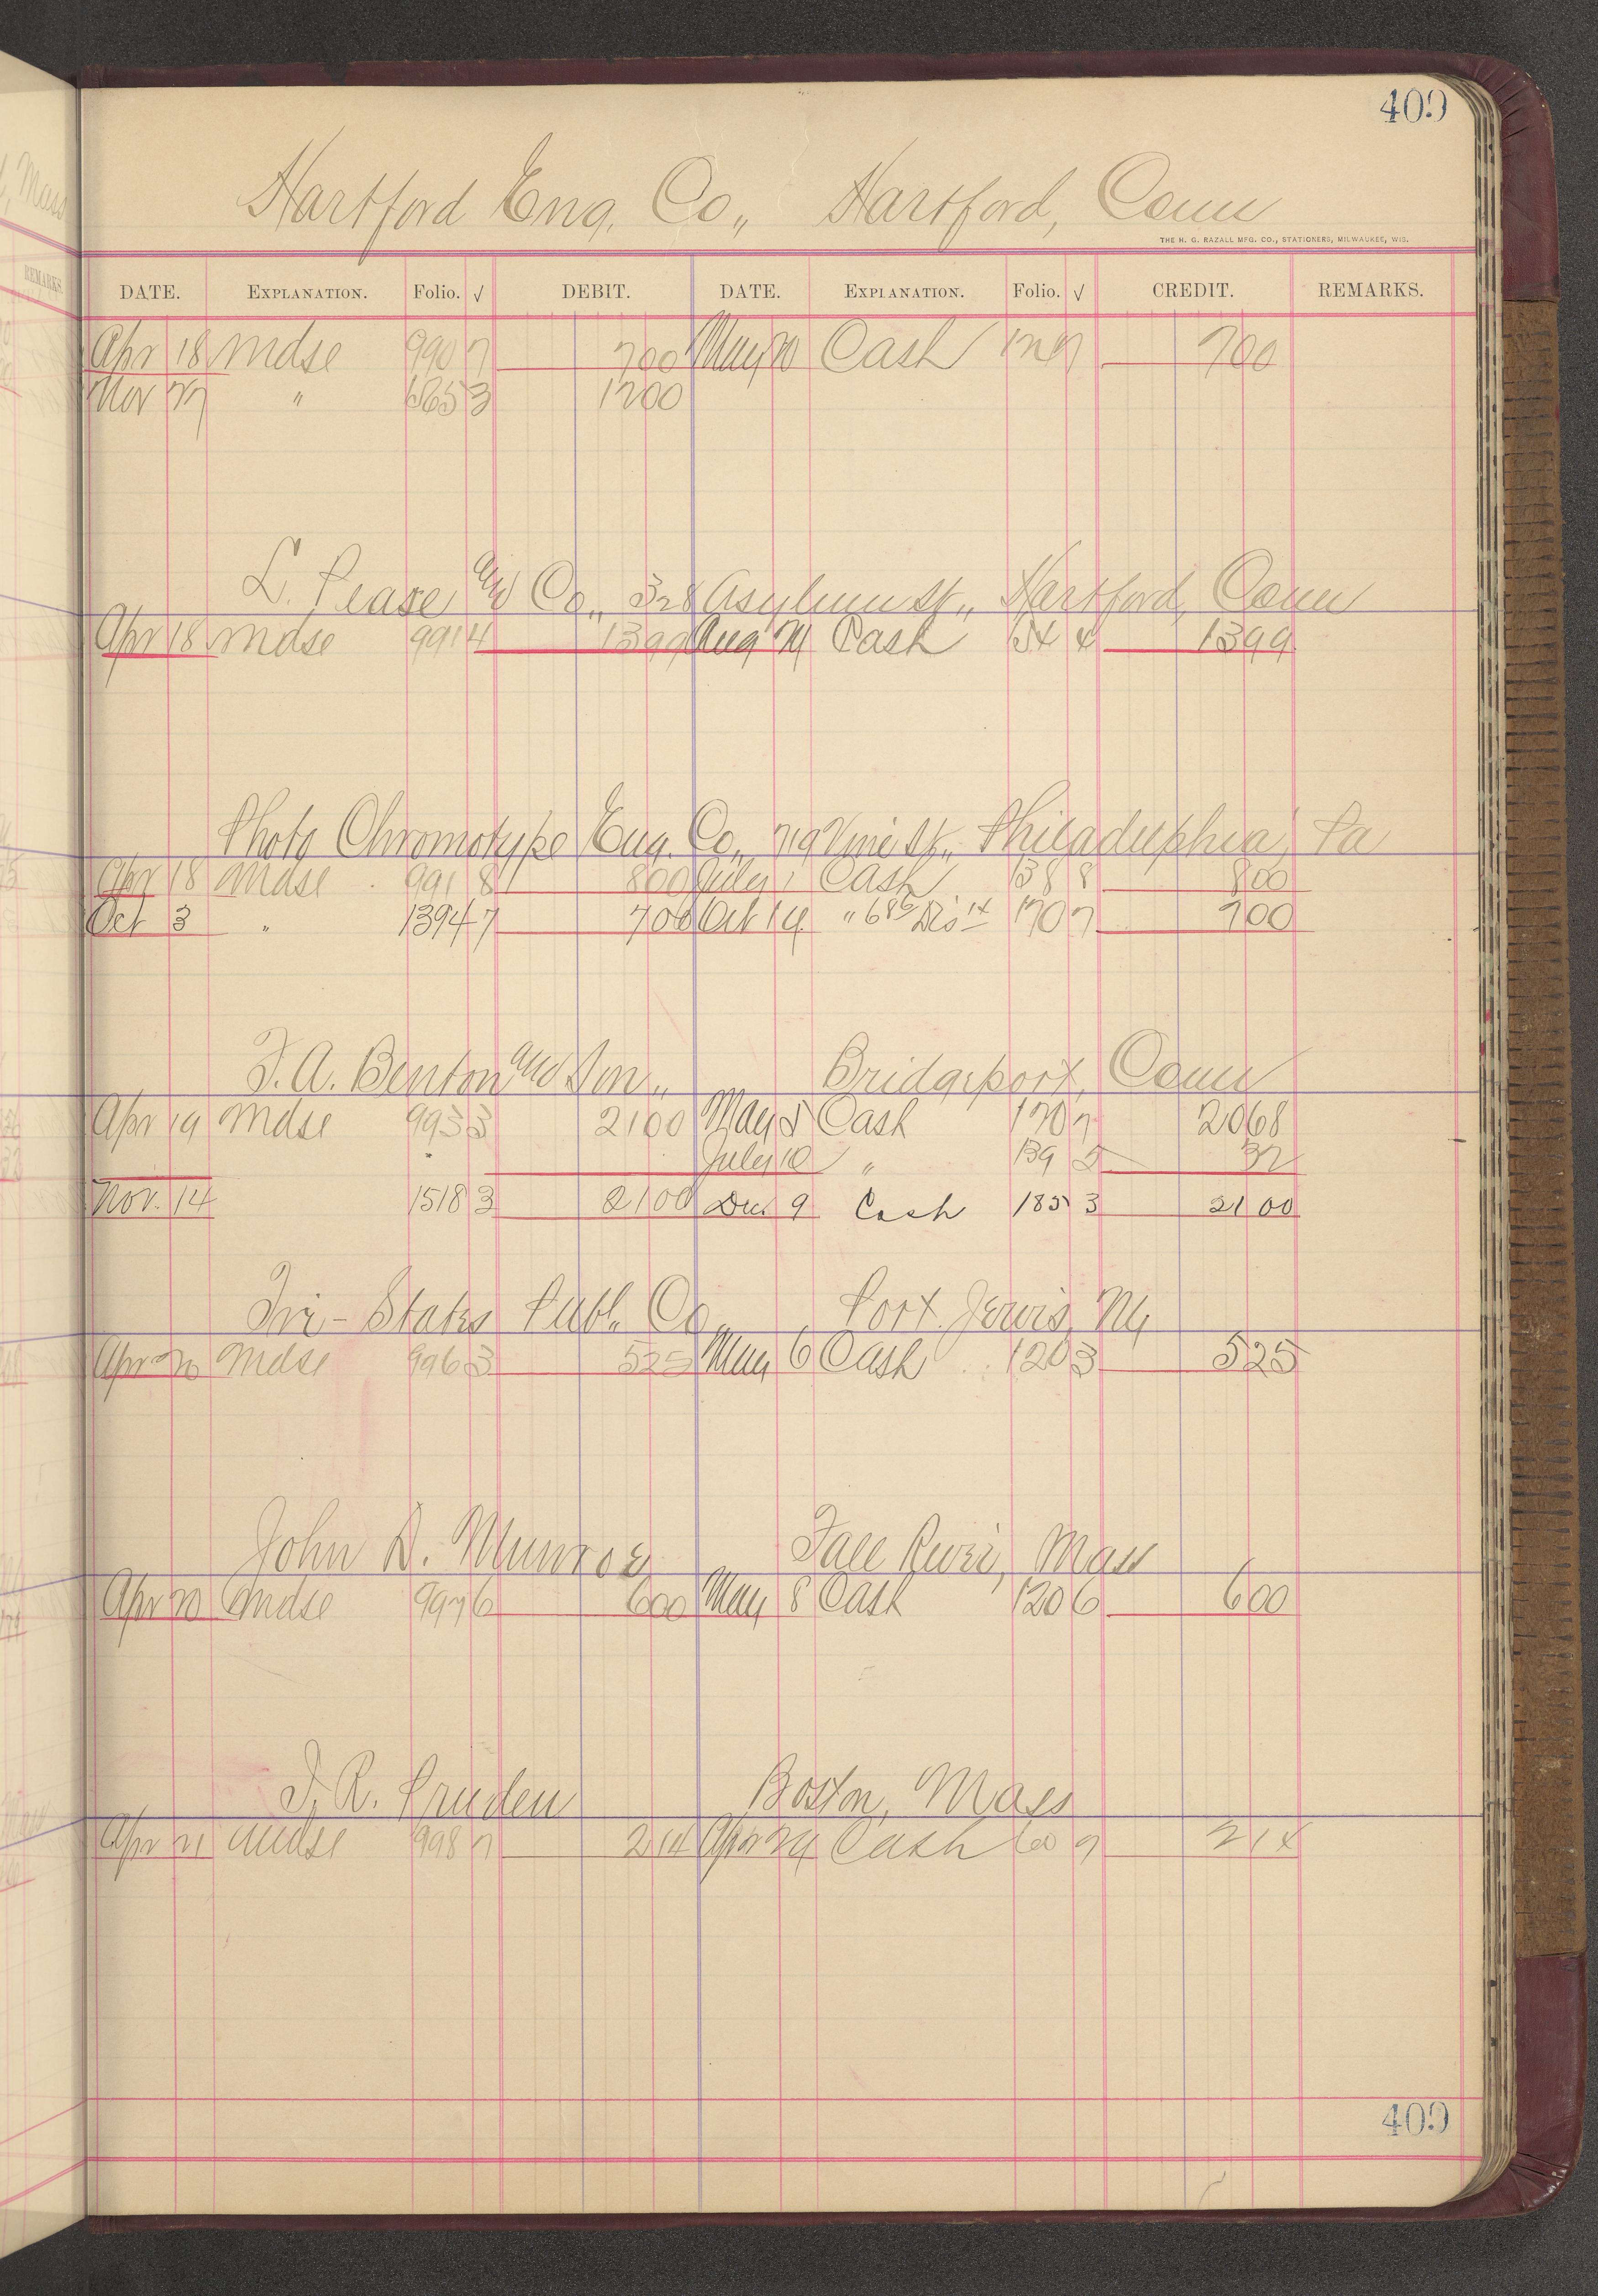 409
Hartford Eng. Co., Hartford, Conn
THE H. G. RAZALL MFG. CO., STATIONERS, MILWAUKEE, WIS.
DATE. EXPLANATION. Folio. √ DEBIT. DATE. EXPLANATION. Folio. √ CREDIT. REMARKS.
Apr 18 Mdse 990 7 700 May 20 Cash 700
Nov 27 " 1565 3 1200
L. Pease and Co., 328 Asylum St., Hartford, Conn
Apr 18 Mdse 991 4 1399 Aug 24 Cash 1399
Photo Chromotype Eng. Co., 719 Vine St., Philadelphia, Pa
Apr 18 Mdse 991 8 800 July 1 Cash 138 8 800
Oct 3 " 1394 7 700 Oct 14 " 686 Dis 14 170 7 700
F. A. Benton and Son., Bridgeport, Conn
Apr 19 Mdse 993 3 2100 May 5 Cash 120 7 2068
July 10 " 139 5 32
Nov. 14 1518 3 2100 Dec 9 Cash 185 3 2100
Tri-States Publ. Co., Port Jervis, NY
Apr 20 Mdse 996 3 525 May 6 Cash 120 3 525
John D. Munroe Fall River, Mass
Apr 20 Mdse 997 6 600 May 8 Cash 120 6 600
T. R. Pruden Boston, Mass
Apr 21 Mdse 998 7 214 Apr 24 Cash 60 7 214
409
REMARKS.
Mass